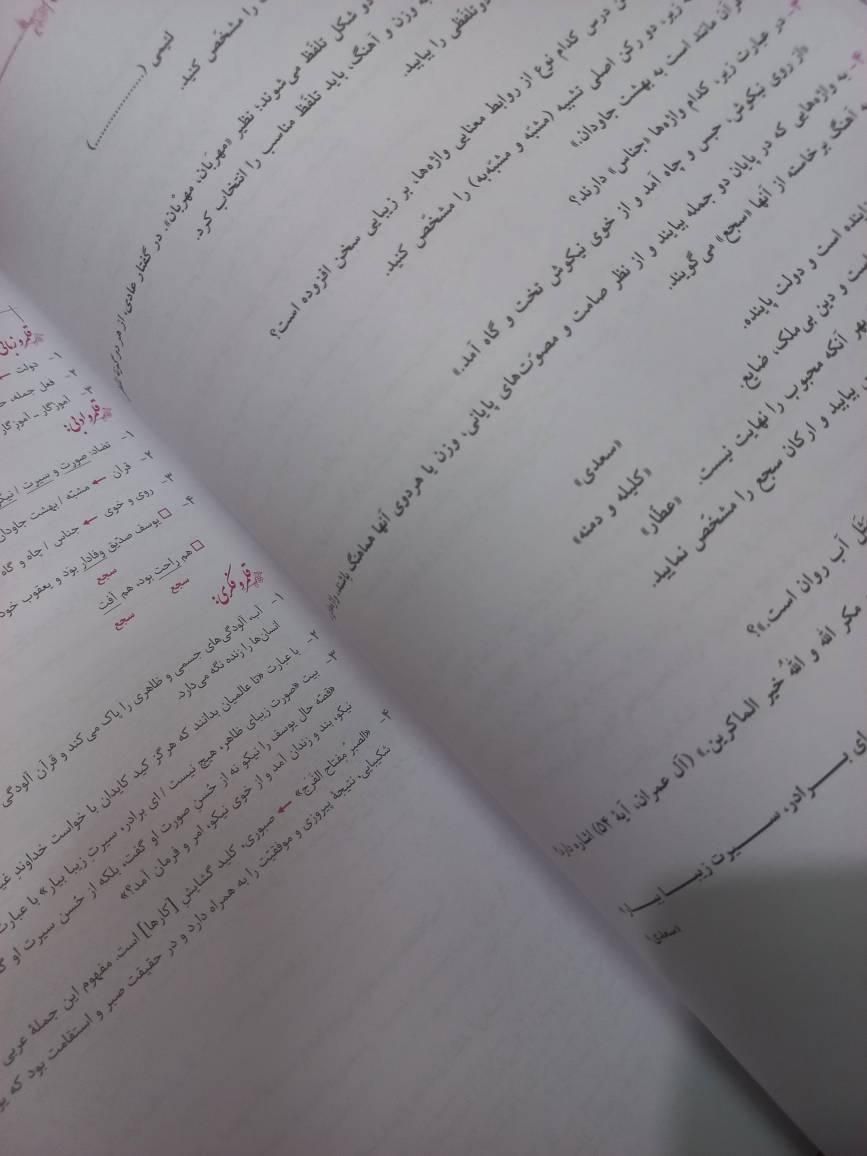 لئیمی (....................)
را مشخص کنید.
دو شکل تلفظ می‌شوند؛ نظیر «مهربان، مهربان». در گفتار عادی از هر دو
وزن و آهنگ، باید تلفظ مناسب را انتخاب کرد.
دو تلفظی را بیابید.
درس کدام نوع از روابط معنایی واژه‌ها، بر زیبایی سخن افزوده است؟
زیر، دو رکن اصلی تشبیه (مشبّه و مشبّه‌به) را مشخّص کنید.
قرآن مانند است به بهشت جاودان.»
۳- در عبارت زیر، کدام واژه‌ها «جناس» دارند؟
«از روی نیکوش، حبس و چاه آمد و از خوی نیکوش تخت و گاه آمد.»
۴- به واژه‌هایی که در پایان دو جمله بیایند و از نظر صامت و مصوّت‌های پایانی، وزن یا هر دوی آنها هماهنگ باشند
آهنگ برخاسته از آنها «سجع» می‌گویند.
است و دولت پاینده.
«سعدی»
و دین بی ملک، ضایع.
«کلیله و دمنه»
بهر آنکه محبوب را نهایت نیست.
«عطّار»
بیابید و ارکان سجع را مشخّص نمایید.
آب روان است.»؟
مکر الله و اللهُ خَیر الماکرین.» (آل عمران، آیهٔ ۵۴) اشاره دارد؟
ای برادر، سیرت زیبا بیار
(سعدی)
قلمرو زبانی
۱- دولت ←
۲- فعل جمله
۳- آموزگار - آموزگار
قلمرو ادبی:
۱- تضاد: صورت و سیرت /
۲- قرآن ← مشبّه / بهشت جاودان
۳- روی و خوی ← جناس / چاه و گاه
۴- □ یوسف صدّیق وفادار بود و یعقوب خود
سجع
□ هم راحت بود، هم آفت
سجع سجع
قلمرو فکری:
۱- آب، آلودگی‌های جسمی و ظاهری را پاک می کند و قرآن آلودگی
انسان‌ها را زنده نگه می دارد.
۲- با عبارت «تا عالمیان بدانند که هرگز کید کایدان با خواست خداوند
۳- بیت «صورت زیبای ظاهر، هیچ نیست / ای برادر، سیرت زیبا بیار» با عبارت
«قصّه حال یوسف را نیکو نه از حُسن صورت او گفت، بلکه از حُسن سیرت او
نیکو، بند و زندان آمد و از خوی نیکو، امر و فرمان آمد؟»
۴- «الصبر مفتاح الفرج» ← صبوری، کلید گشایش [کارها] است. مفهوم این جملهٔ عربی
شکیبایی، نتیجهٔ پیروزی و موفقیّت را به همراه دارد و در حقیقت صبر و استقامت بود که